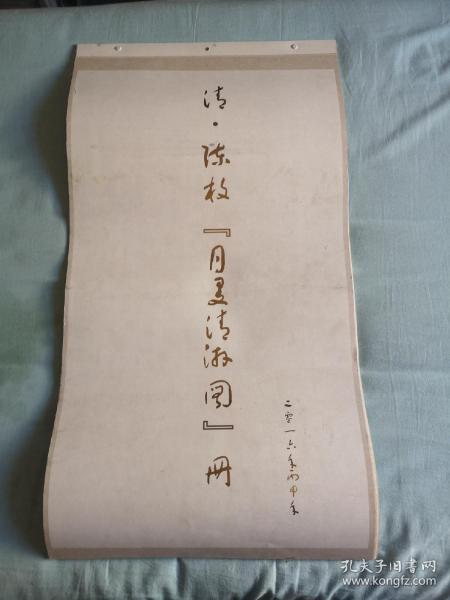 清·陈枚『月曼清游图』册
二零一六年丙申年
孔夫子旧书网
www.kongfz.com